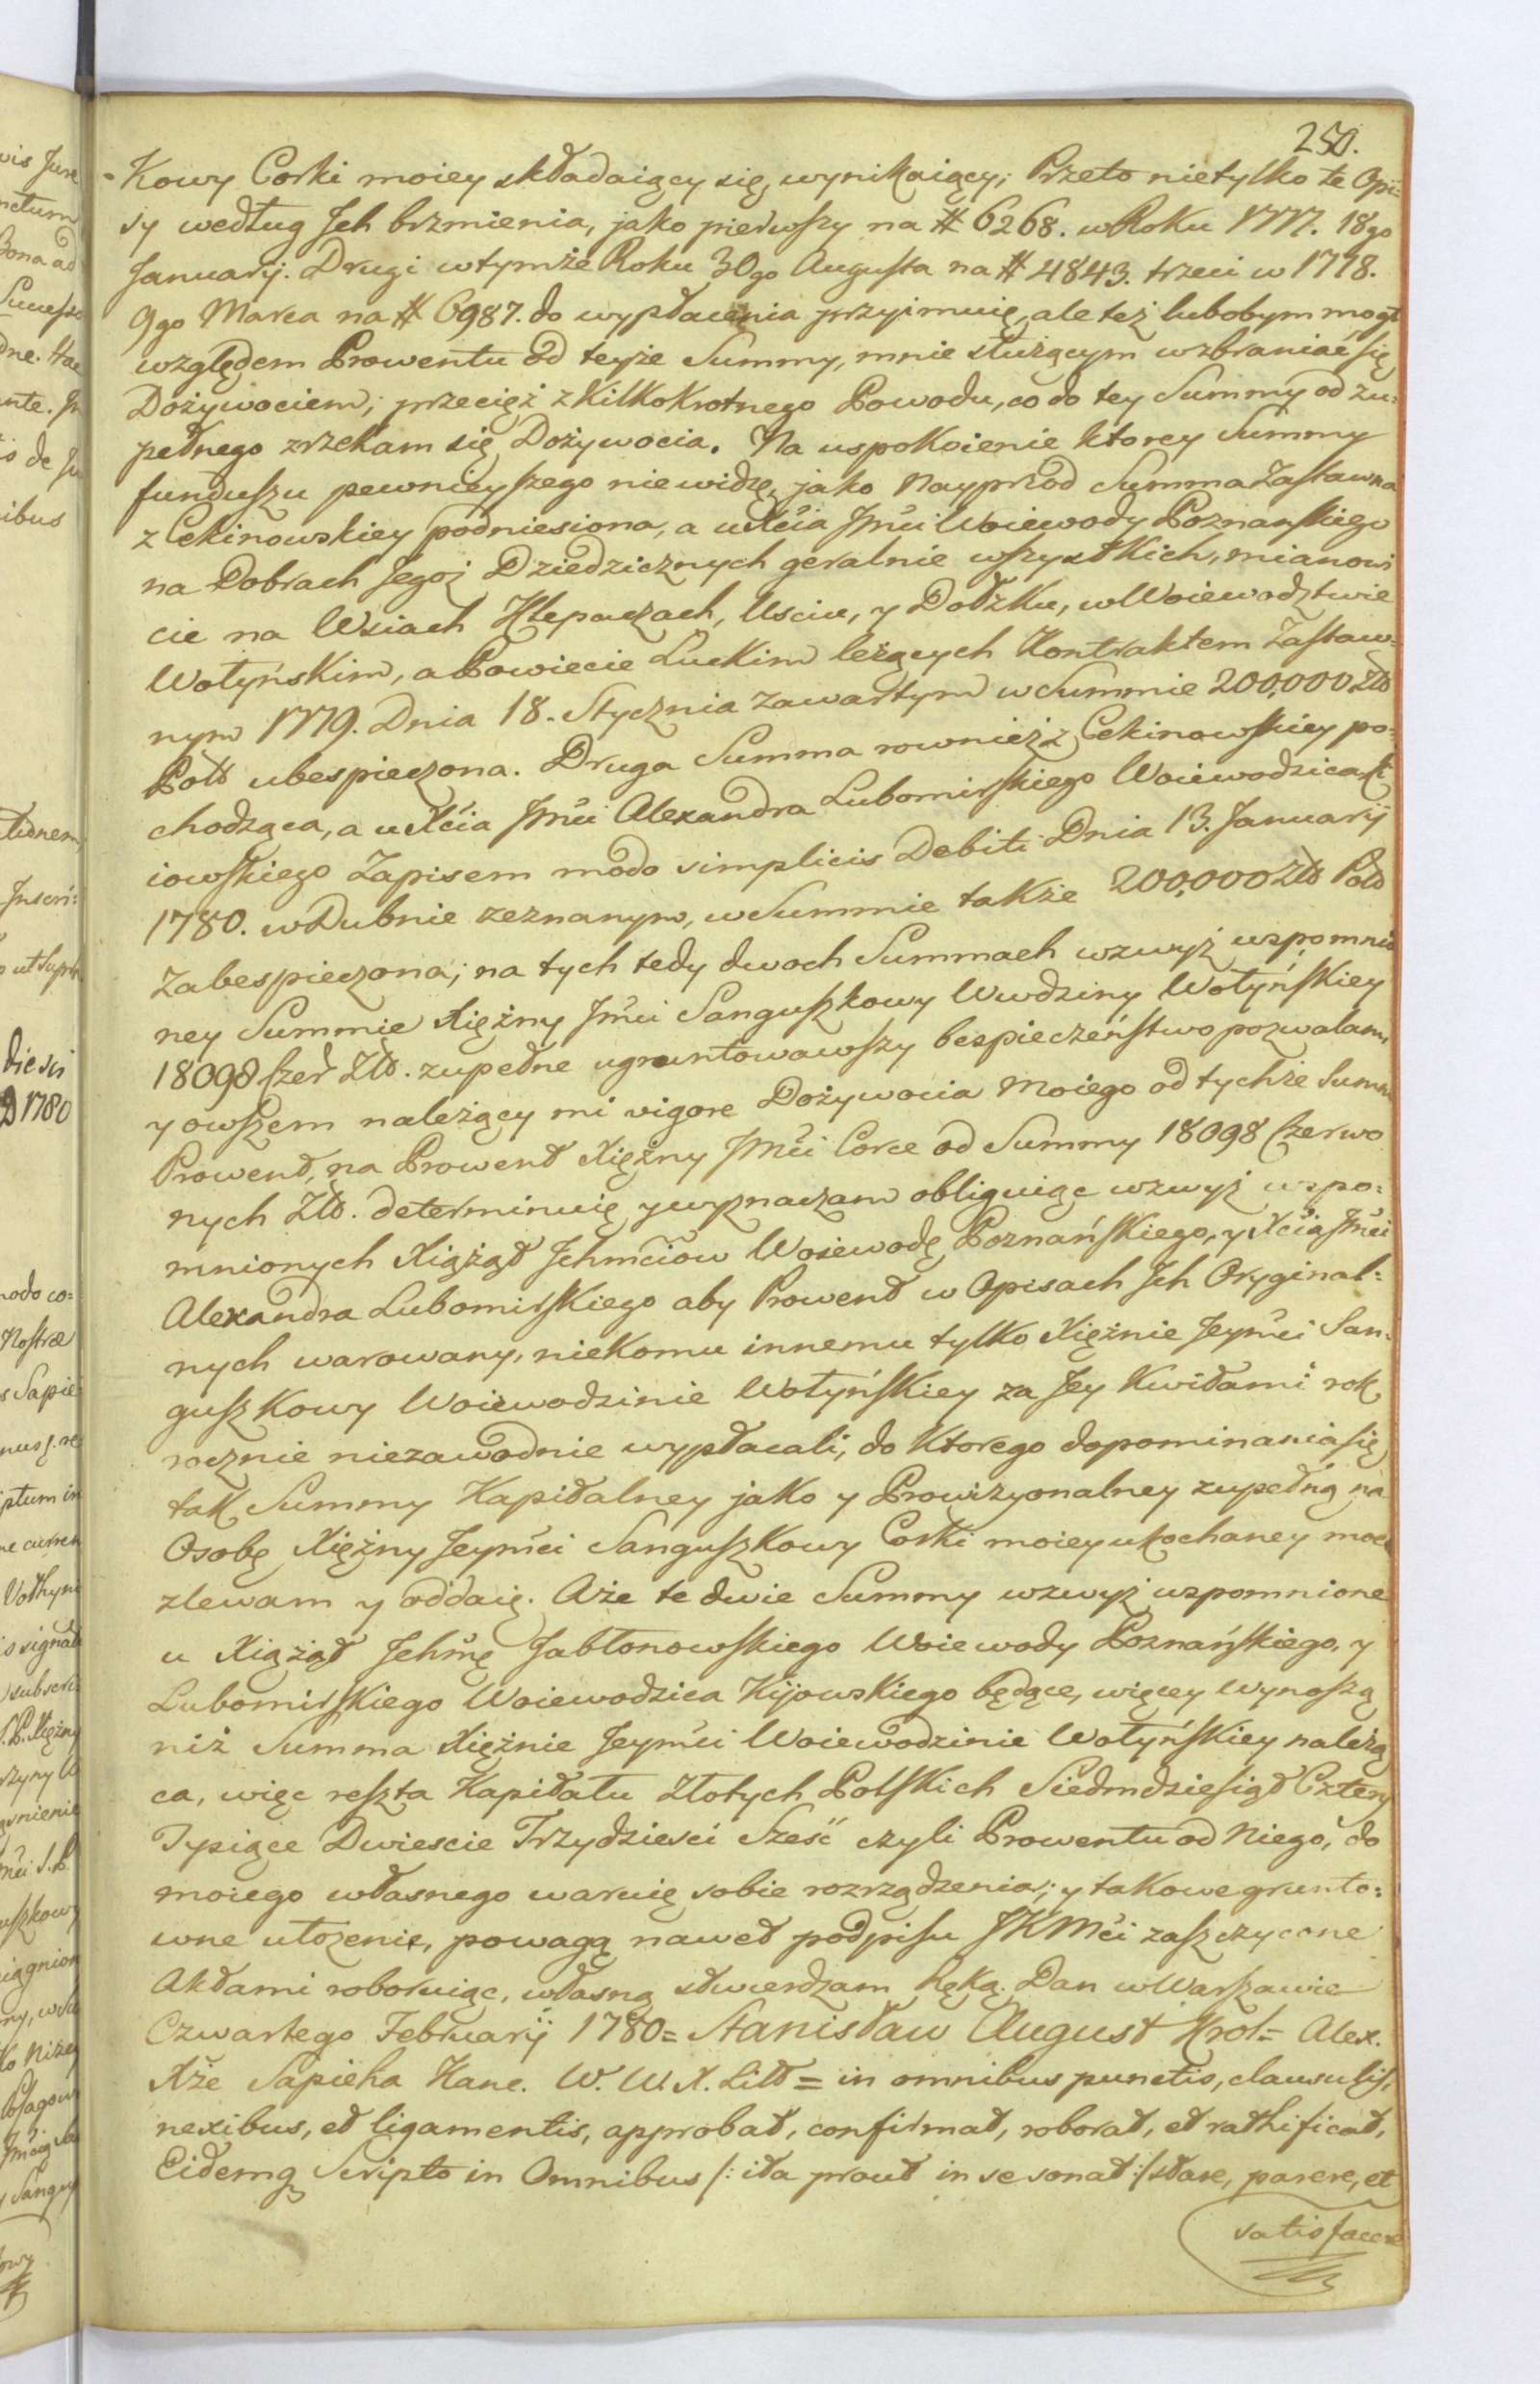 250.
-kowy Corki moiey składaiący się, wynikaiący; Przeto nietylko te Opi-
sy według Jch brzmienia, jako pierwszy na # 6268. w Roku 1777. 18go
Januarij. Drugi w tymże Roku 30go Augusta na # 4843. trzeci w 1778.
9go Marca na # 6987. do wypłacenia przyimuię, ale też lubobym mogł
względem Prowentu od teyże Summy, mnie służącym wzbraniać się
Dożywociem; przecięż z kilkokrotnego Powodu, co do tey Summy od zu-
pełnego zrzekam się Dożywocia. Na uspokoienie ktorey Summy
funduszu pewnieyszego niewidzę, jako Nayprzod Summa Zastawna
z Cekinowskiey podniesiona, a u Xcia Jmci Woiewody Poznańskiego
na Dobrach Jegoż Dziedzicznych geralnie wszystkich, mianowi
cie na Wsiach Hlepaczach, Usciu, y Dołżku, w Woiewodztwie
Wołyńskim, a Powiecie Łuckim leżących Kontraktem Zastaw-
nym 1779. Dnia 18. Stycznia zawartym w Summie 200,000 Złł
Poll ubespieczona. Druga Summa rownież z Cekinowskiey po-
chodząca, a u Xcia Jmci Alexandra Lubomirskiego Woiewodzica Ki
iowskiego Zapisem modo simplicis Debiti Dnia 13. Januarij
1780. w Dubnie zeznanym, w Summie także 200,000 Złł Poll
Zabespieczona; na tych tedy dwoch Summach wzwyż wspomnio
ney Summie Xiężny Jmci Sanguszkowy Wwdziny Wołyńskiey
18098 Czer Złł. zupełne ugruntowawszy bespieczeństwo pozwalam,
y owszem należący mi vigore Dożywocia Moiego od tychże Summ
Prowent, na Prowent Xiężny Jmci Corce od Summy 18098 Czerwo
nych Złł. determinuię y wyznaczam obliguiąc wzwyż wspo-
mnionych Xiążąt Jchmciow Woiewodę Poznańskiego, y Xcia Jmci
Alexandra Lubomirskiego aby Prowent w Opisach Jch Oryginal-
nych warowany, niekomu innemu tylko Xiężnie Jeymci San-
guszkowy Woiewodzinie Wołyńskiey za Jey Kwitami rok
rocznie niezawodnie wypłacali, do ktorego dopominania się
tak Summy Kapitalney jako y Prowizyonalney zupełną na
Osobę Xiężny Jeymci Sanguszkowy Corki moiey ukochaney moc
zlewam y oddaię. Aże te dwie Summy wzwyż wspomnione
u Xiążąt Jchmc Jabłonowskiego Woiewody Poznańskiego, y
Lubomirskiego Woiewodzica Kijowskiego będące, więcey wynoszą
niż Summa Xiężnie Jeymci Woiewodzinie Wołyńskiey należą
ca, więc reszta Kapitału Złotych Polskich Siedmdziesiąt Cztery
Tysiące Dwiescie Trzydzieści Sześć czyli Prowentu od Niego, do
moiego własnego waruię sobie rozrządzenia; y takowe grunto-
wne ułożenie, powagą nawet podpisu JKMci zaszczycone
Aktami roboruiąc, własną stwierdzam Ręką. Dan w Warszawie
Czwartego Februarij 1780= Stanisław August Krol= Alex.
Xże Sapieha Kanc. W. W. X. Litt = in omnibus punctis, clausulis,
nexibus, et ligamentis, approbat, confirmat, roborat, et rathificat,
Eidemq Scripto in Omnibus /: ita prout in se sonat :/ stare, parere, et
satisfacere